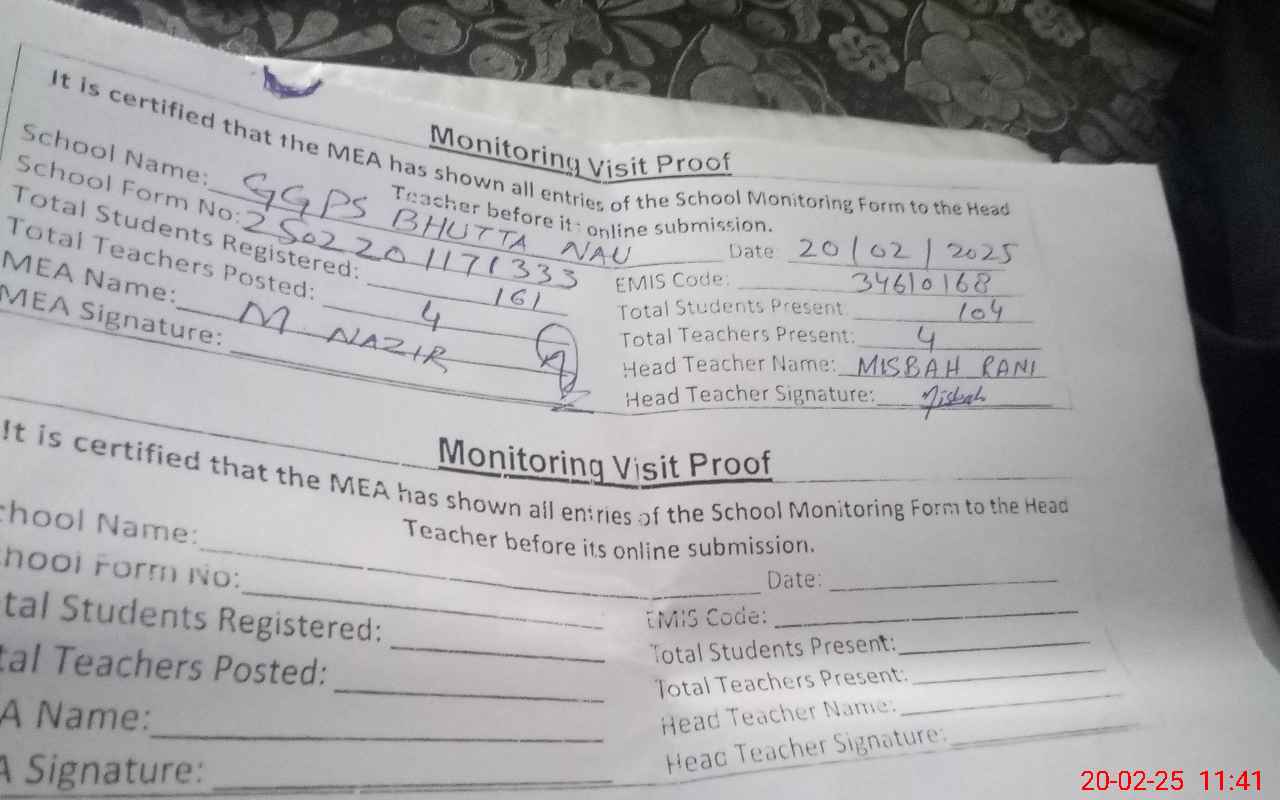 Monitoring Visit Proof
It is certified that the MEA has shown all entries of the School Monitoring Form to the Head
Teacher before its online submission.
School Name: GGPS BHUTTA NAU Date: 20/02/2025
School Form No: 2502201171333 EMIS Code: 34610168
Total Students Registered: 161 Total Students Present: 104
Total Teachers Posted: 4 Total Teachers Present: 4
MEA Name: M. NAZIR Head Teacher Name: MISBAH RANI
MEA Signature: Head Teacher Signature: Misbah
Monitoring Visit Proof
It is certified that the MEA has shown all entries of the School Monitoring Form to the Head
Teacher before its online submission.
chool Name: Date:
hool Form No: EMIS Code:
tal Students Registered: Total Students Present:
tal Teachers Posted: Total Teachers Present:
A Name: Head Teacher Name:
A Signature: Head Teacher Signature:
20-02-25 11:41